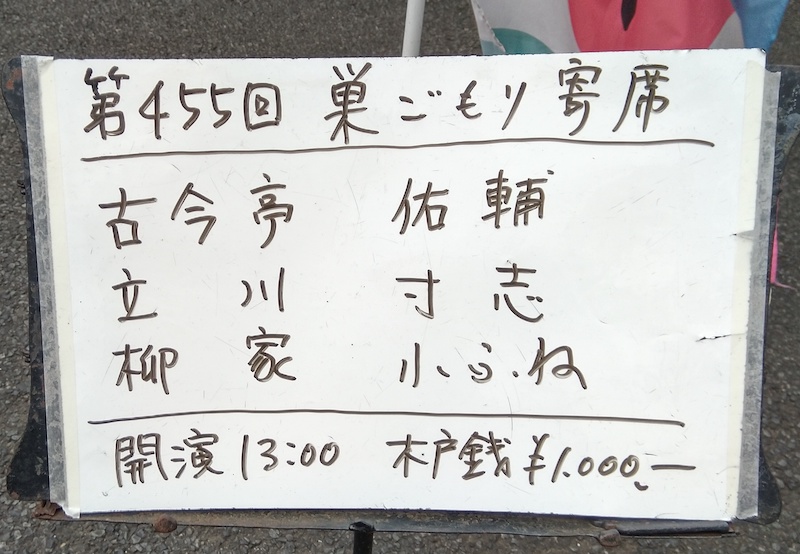 第455回 巣ごもり寄席
古今亭 佑輔
立川 寸志
柳家 小ふね
開演13:00 木戸銭¥1.000.-